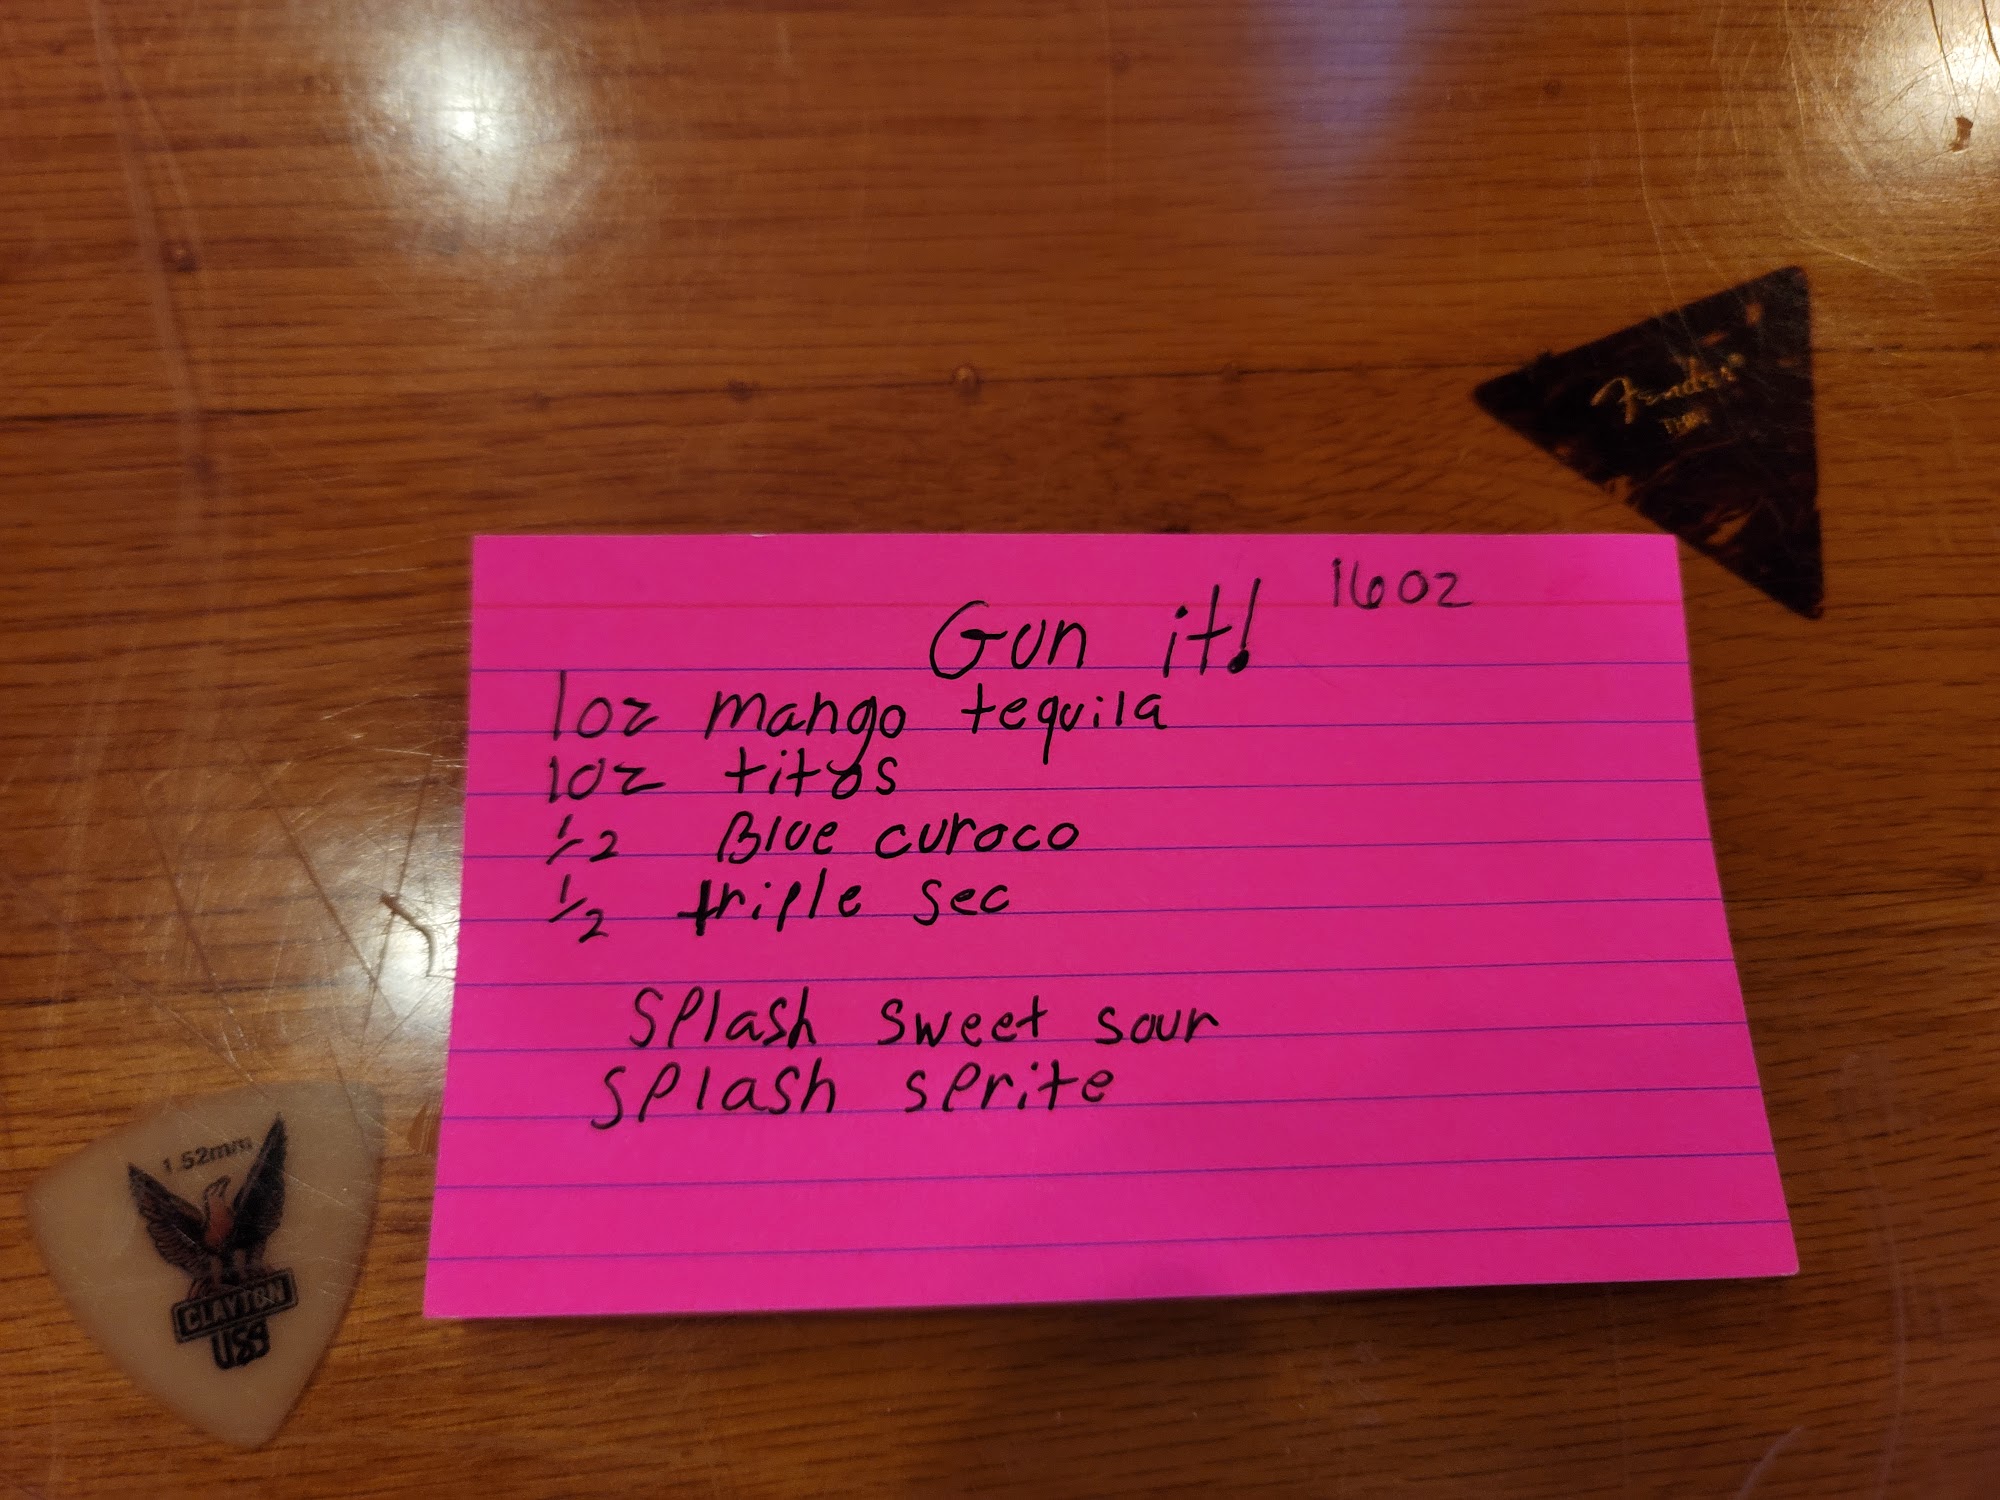 16oz
Gun it!
1oz mango tequila
1oz titos
1/2 Blue curoco
1/2 triple sec
Splash sweet sour
Splash sprite
Fender
1.52mm
CLAYTON
USA